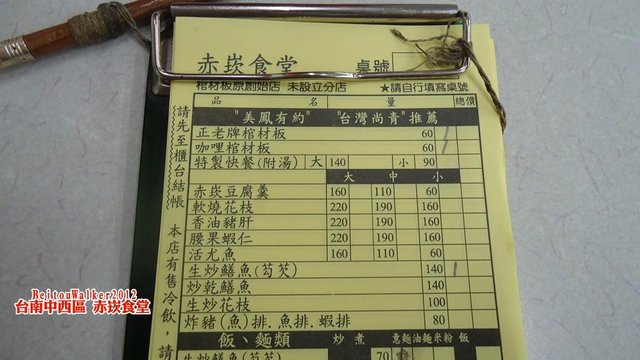 赤崁食堂 桌號
棺材板原創始店 未設立分店 ★請自行填寫桌號
品 名 量 總價
"美鳳有約" "台灣尚青"推薦
正老牌棺材板 60
咖哩棺材板 60
特製快餐(附湯) 大 140 小 90
大 中 小
赤崁豆腐羹 160 110 60
軟燒花枝 220 190 160
香油豬肝 220 190 160
腰果蝦仁 220 190 160
活尤魚 160 110 60
生炒鱔魚(芶芡) 140
炒乾鱔魚 140
生炒花枝 100
炸豬(魚)排.魚排.蝦排 80
飯、麵類 炒 煮 意麵 油麵 米粉 飯
生炒鱔魚(芶芡) 70
請先至櫃台結帳
本店有售冷飲，請
BeitouWalker2012
台南中西區 赤崁食堂